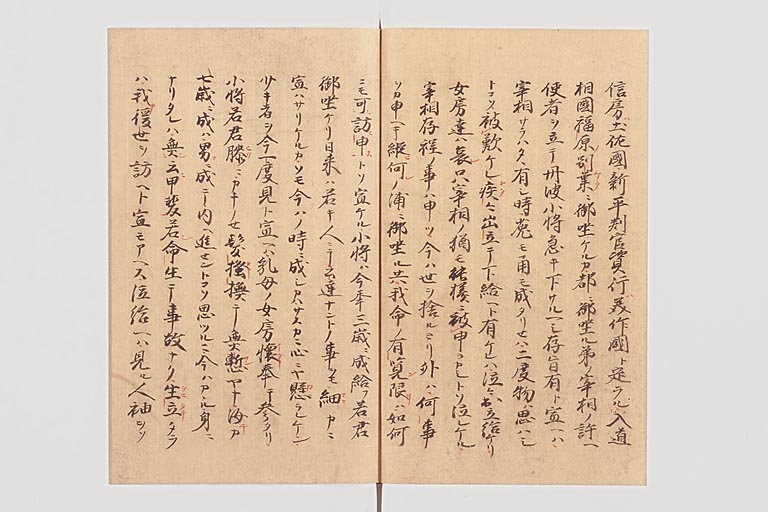 信房土佐國新平判官資行美作國ト定ラル入道
相國福原別業ニ御坐ケルカ都ニ御坐ル弟ノ宰相ノ許ヘ
使者ヲ立テ丹波小將急キ下サルヘシ存旨有ト宣ヘハ
宰相サラハタヽ有シ時兎モ角モ成タリセハ二度物ハ思ハシ
トコソ被歎ケレ疾々出立テ下給ヘト有ケレハ泣々出立給ケリ
女房達ハ哀只ハ宰相ノ猶モ能樣ニ被申ヨカシトソ泣レケル
宰相存程ノ事ハ申ツ今ハ世ヲ捨ルヨリ外ハ何事
ヲカ申ヘキ縱何ノ浦ニ御坐ル共我命ノ有覽限ハ如何
ニモ可訪申トソ宣ケル小將ハ今年三歳ニ成給フ若君
御坐ケリ日来ハ若キ人ニテ公達ナントノ事ヲモ細カニ
宣ハサリケルカソモ今ハノ時ニ成シカハサスカニ心ニヤ懸ラレケン
少キ者ヲ今一度見ト宣ヘハ乳母ノ女房懷奉テ参タリ
小將若君膝ニカキノセ髮掻撫テ無慙ヤナ汝カ
七歳ニ成ハ男ニ成テ内ヘ進セントコソ思ツルニ今ハカヽル身ニ
ナリヌルハ無云甲斐若命生テ事故ナク生立タラ
ハ我後世ヲ訪ヘト宣モアヘス泣給ヘハ見ル人袖ヲソ